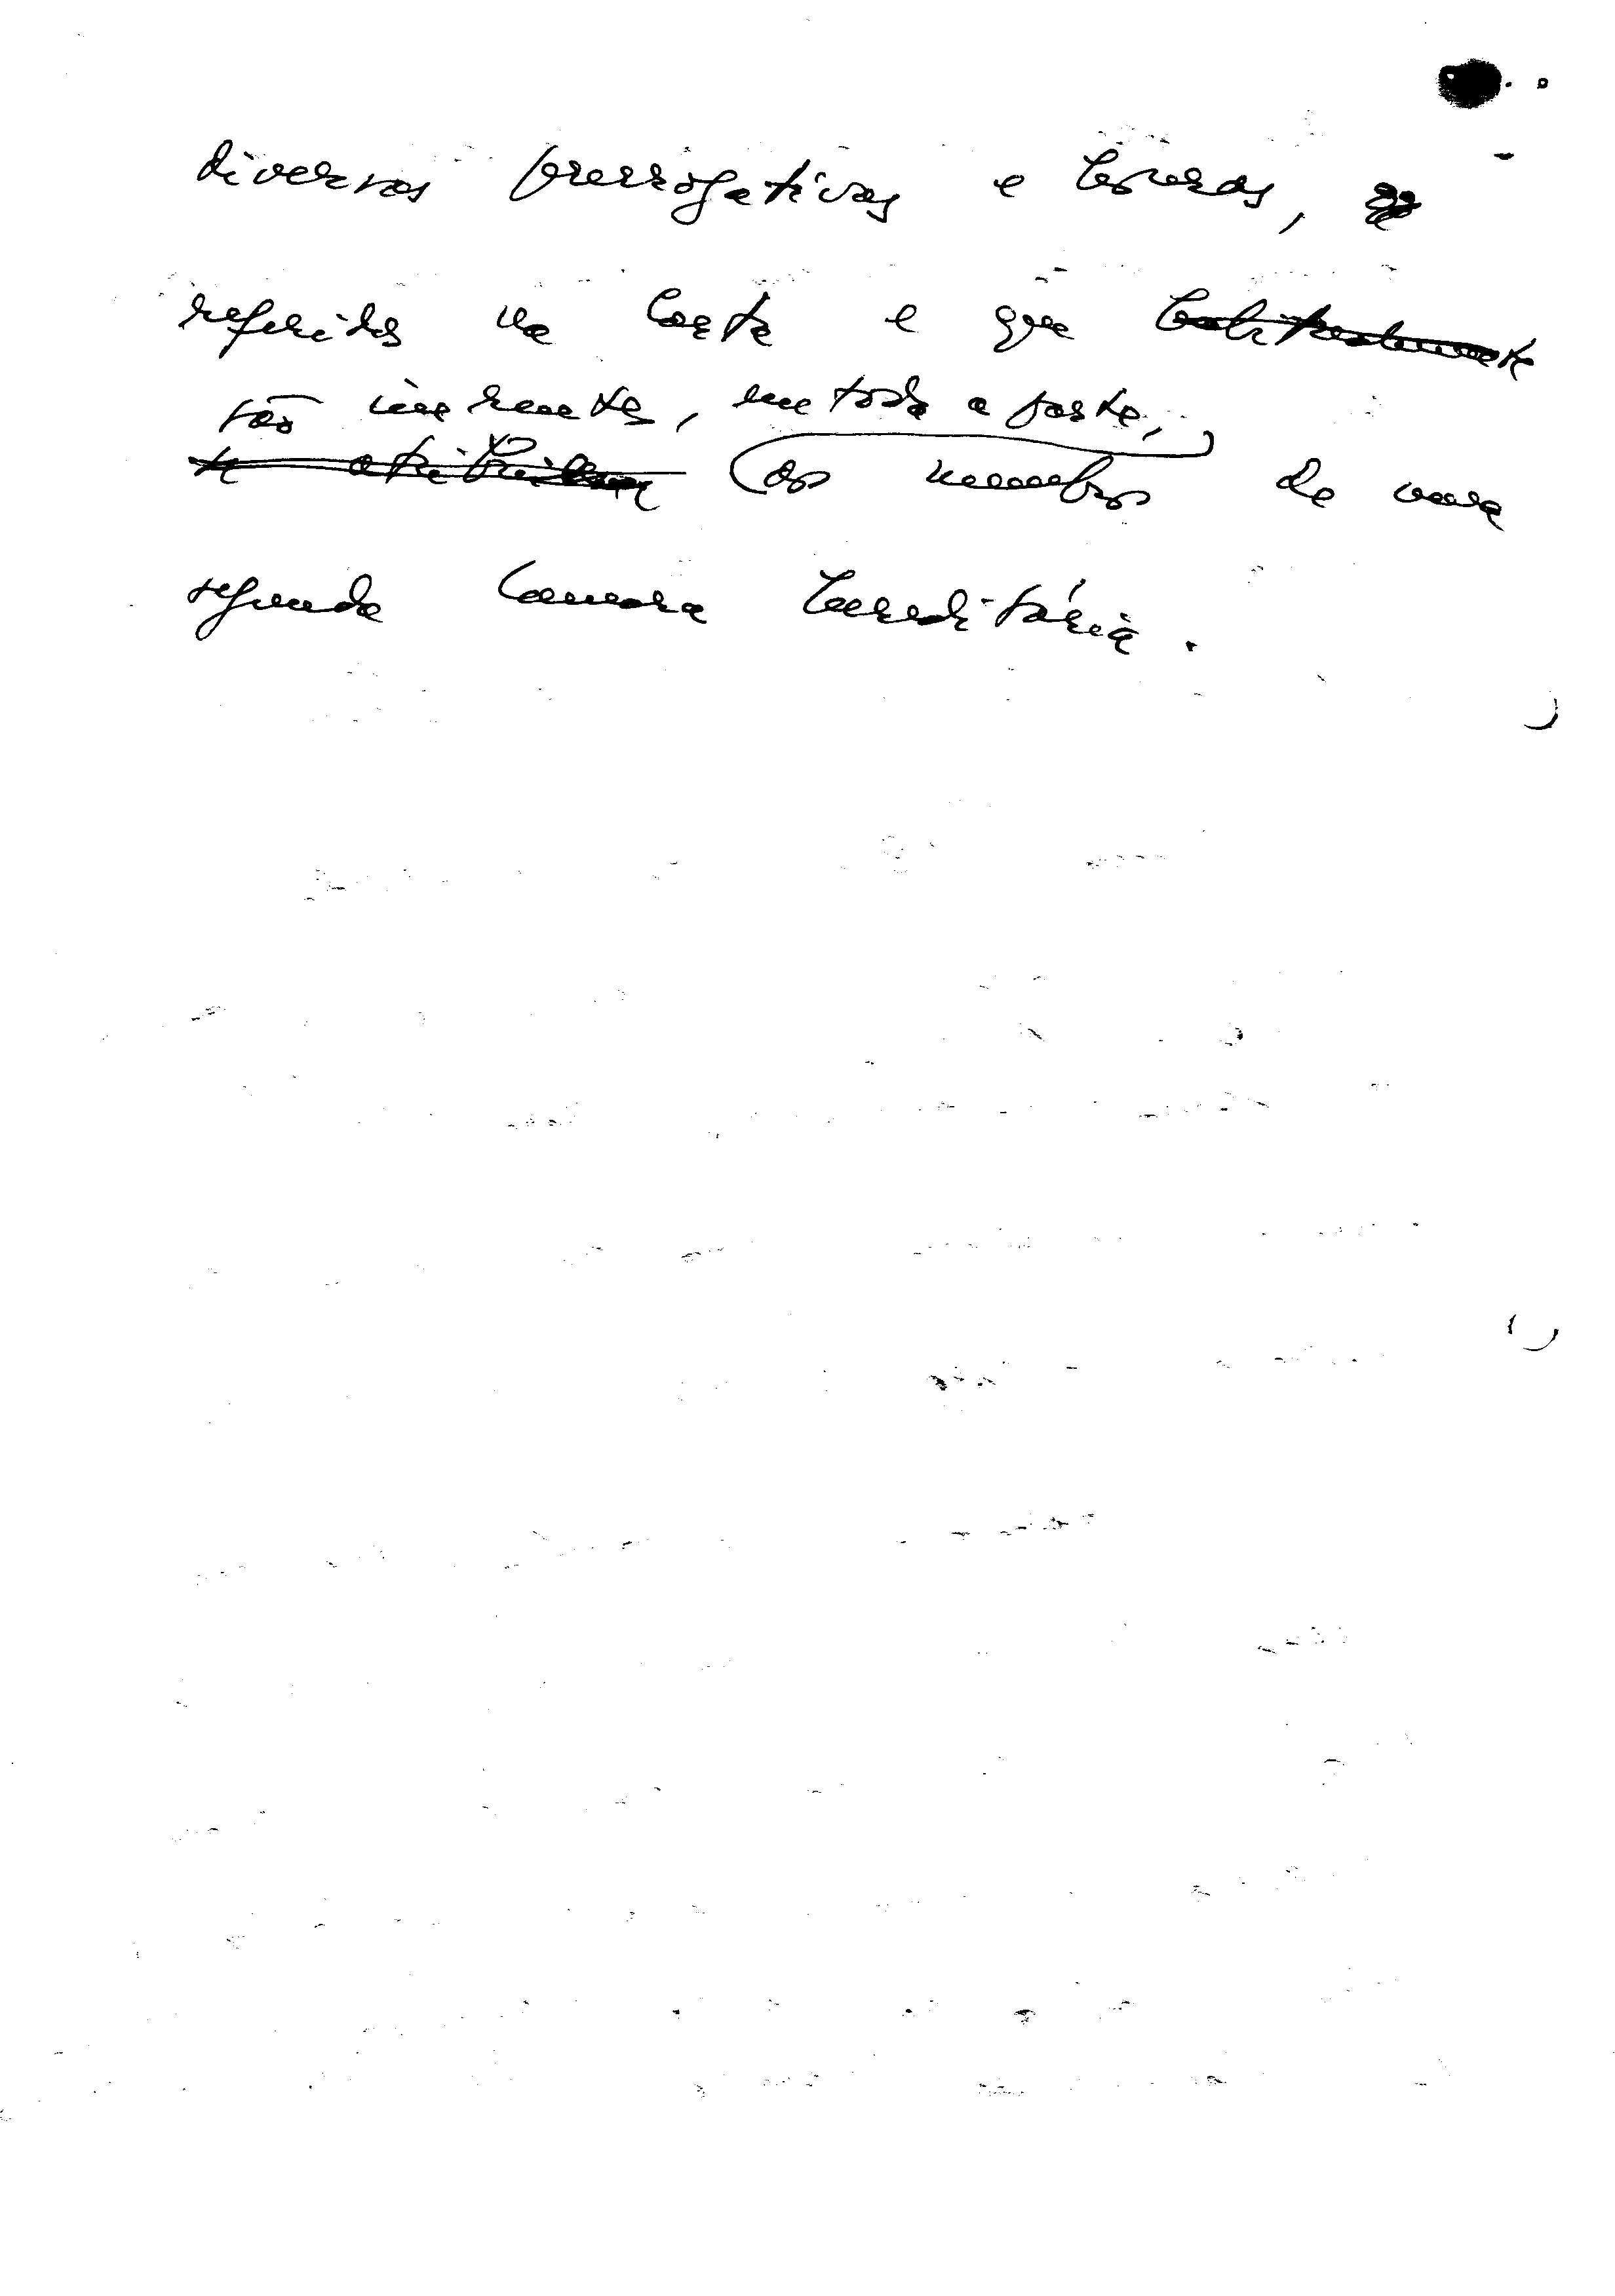 diversas prerrogativas e honras,
referidas na Carta e que habitualmente
são inerentes, em toda a parte,
se atribuem aos membros de uma
segunda Camara hereditária.